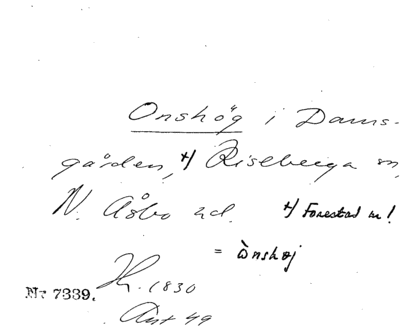 Onshög i Dams-
gården, +) Riseberga sn,
N. Åsbo hd. +) Forestad sn!
= Ònshøj
Nr 7339. Hr. 1830
Ant 49